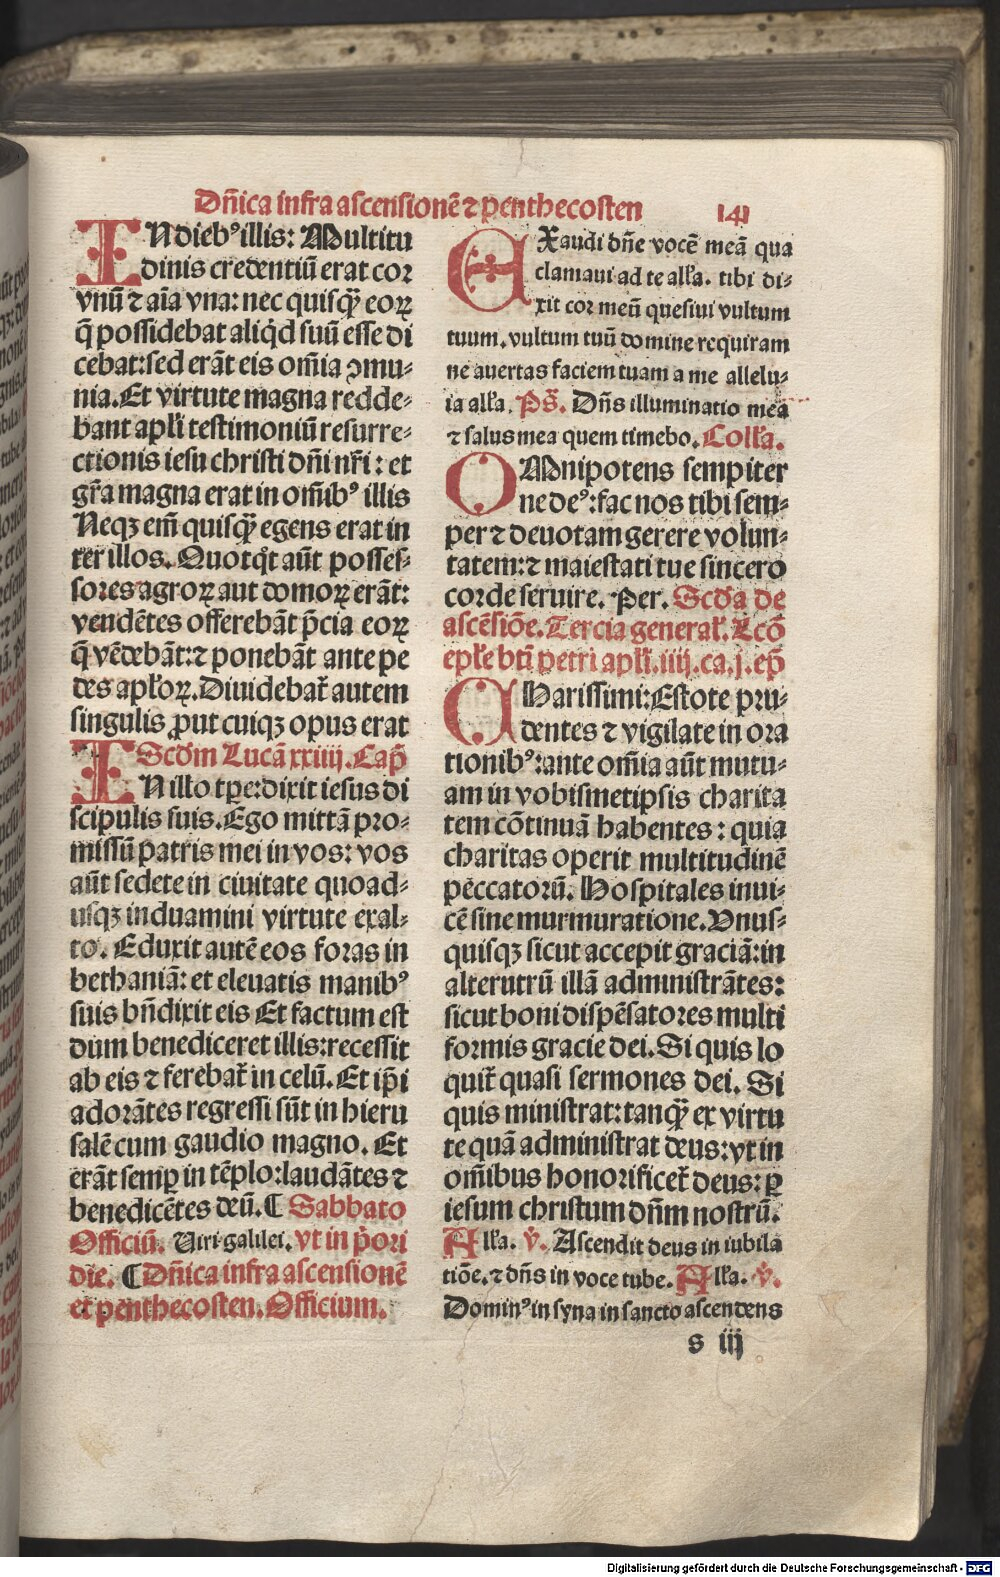 Dñica infra ascensionẽ ⁊ penthecosten 141
IN diebꝰ illis: Multitu
dinis credentiũ erat cor
vnũ ⁊ aĩa vna: nec quisꝙ̃ eoꝝ
q̃ possidebat aliq̃d suũ esse di
cebat: sed erãt eis om̃ia ꝯmu⸗
nia. Et virtute magna redde⸗
bant apl̃i testimoniũ resurre⸗
ctionis iesu christi dñi nr̃i: et
gr̃a magna erat in om̃ibꝰ illis
Neqꝫ em̃ quisꝙ̃ egens erat in
ter illos. Quotq̃t aũt posses⸗
sores agroꝝ aut domoꝝ erãt:
vendẽtes offerebãt p̃cia eoꝝ
q̃ vẽdebãt: ⁊ ponebãt ante pe
des apl̃oꝝ. Diuidebat̃ autem
singulis ꝓut cuiqꝫ opus erat
Scd̃m Lucã xxiiij. Cap̃
IN illo tꝑe: dixit iesus di
scipulis suis. Ego mittã pro⸗
missũ patris mei in vos: vos
aũt sedete in ciuitate quoad⸗
usqꝫ induamini virtute exal⸗
to. Eduxit autẽ eos foras in
bethaniã: et eleuatis manibꝰ
suis bñdixit eis Et factum est
dum benediceret illis: recessit
ab eis ⁊ ferebat̃ in celũ. Et ip̃i
adorãtes regressi sũt in hieru
salẽ cum gaudio magno. Et
erãt semꝑ in tẽplo: laudãtes ⁊
benedicẽtes deũ. ¶ Sabbato
Officiũ. Viri galilei. vt in p̃ori
die. ¶ Dñica infra ascensionẽ
et penthecosten. Officium.
EXaudi dñe vocẽ meã qua
clamaui ad te all̃a. tibi di⸗
xit cor meũ quesiui vultum
tuum. vultum tuũ domine requiram
ne auertas faciem tuam a me allelu⸗
ia all̃a. Ps̃. Dñs illuminatio mea
⁊ salus mea quem timebo. Coll̃a.
OMnipotens sempiter
ne deꝰ: fac nos tibi sem⸗
per ⁊ deuotam gerere volun⸗
tatem: ⁊ maiestati tue sincero
corde seruire. Per. Scd̃a de
ascẽsiõe. Tercia general̃. Lcõ
epl̃e bt̃i petri apl̃i. iiij. ca. j. ep̃
CHarissimi: Estote pru⸗
dentes ⁊ vigilate in ora
tionibꝰ: ante om̃ia aũt mutu⸗
am in vobismetipsis charita
tem cõtinuã habentes: quia
charitas operit multitudinẽ
peccatorũ. Hospitales inui⸗
cẽ sine murmuratione. Vnus⸗
quisqꝫ sicut accepit graciã: in
alterutrũ illã administrãtes:
sicut boni dispẽsatores multi
formis gracie dei. Si quis lo
quit̃ quasi sermones dei. Si
quis ministrat: tanꝙ̃ ex virtu
te quã administrat deus: vt in
om̃ibus honorificet̃ deus: ꝑ
iesum christum dñm nostrũ.
All̃a. v̾. Ascendit deus in iubila
tiõe. ⁊ dñs in voce tube. All̃a. v̾.
Dominꝰ in syna in sancto ascendens
s iij
Digitalisierung gefördert durch die Deutsche Forschungsgemeinschaft - DFG